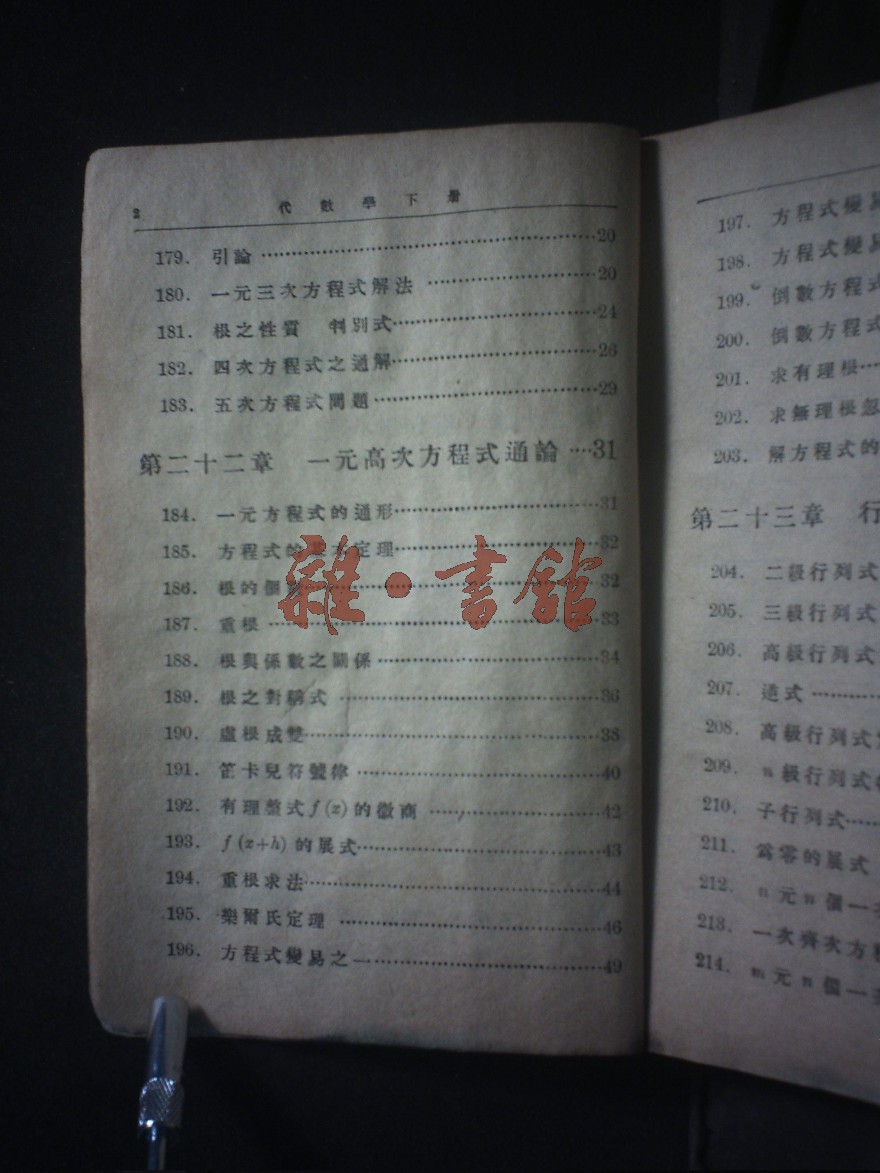 2 代數學下册
179. 引論 20
180. 一元三次方程式解法 20
181. 根之性質 判別式 24
182. 四次方程式之通解 26
183. 五次方程式問題 29
第二十二章 一元高次方程式通論 31
184. 一元方程式的通形 31
185. 方程式的基本定理 32
186. 根的個數 32
187. 重根 33
188. 根與係數之關係 34
189. 根之對稱式 36
190. 虛根成雙 38
191. 笛卡兒符號律 40
192. 有理整式 f(x) 的微商 42
193. f(x+h) 的展式 43
194. 重根求法 44
195. 樂爾氏定理 46
196. 方程式變易之一 49
雜·書館
197. 方程式變易
198. 方程式變易
199. 倒數方程式
200. 倒數方程式
201. 求有理根
202. 求無理根忽
203. 解方程式的
第二十三章 行
204. 二級行列式
205. 三級行列式
206. 高級行列式
207. 逆式
208. 高級行列式
209. n級行列式
210. 子行列式
211. 爲零的展式
212. n元n個一
213. 一次齊次方程
214. m元n個一